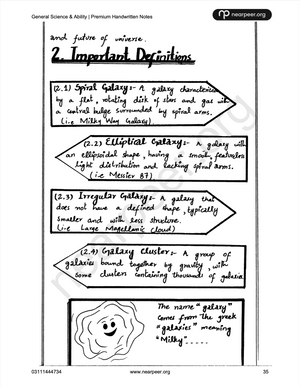 General Science & Ability | Premium Handwritten Notes
nearpeer.org
and future of universe.
2. Important Definitions
(2.1) Spiral Galaxy:- A galaxy characterized
by a flat, rotating disk of stars and gas with
a central bulge surrounded by spiral arms.
(i.e Milky Way Galaxy)
(2.2) Elliptical Galaxy:- A galaxy with
an ellipsoidal shape, having a smooth, featureless
light distribution and lacking spiral arms.
(i.e Messier 87)
(2.3) Irregular Galaxy:- A galaxy that
does not have a defined shape, typically
smaller and with less structure.
(i.e Large Magellanic Cloud)
(2.4) Galaxy Cluster:- A group of
galaxies bound together by gravity, with
some clusters containing thousands of galaxies.
The name "galaxy"
comes from the greek
"galaxies" meaning
"Milky".....
03111444734
www.nearpeer.org
35